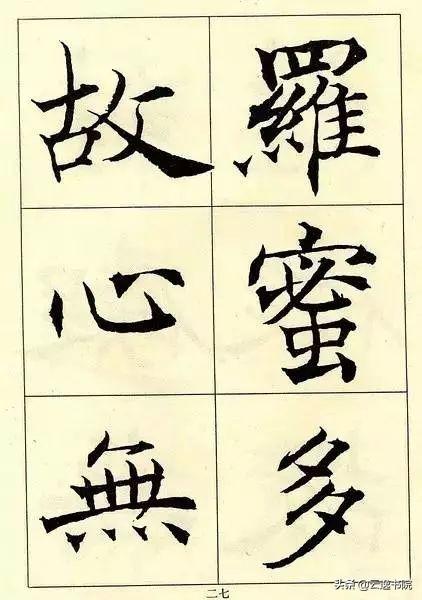 羅蜜多
故心無
二七
头条 @云逸书院